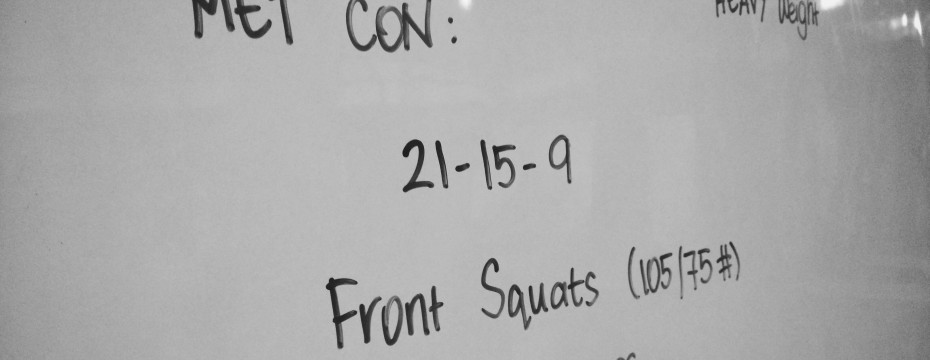 MET CON:
HEAVY Weight
21-15-9
Front Squats (105/75#)